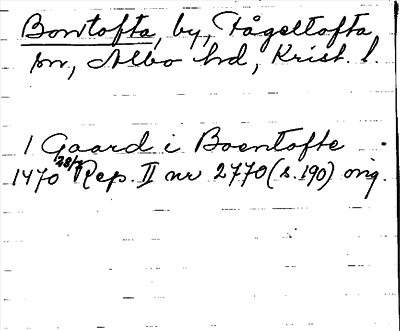 Bontofta, by, Fågeltofta
sn, Albo hd, Krist. l.
1 Gaard i Boentofte
1470 28/7 Rep. II nr 2770 (s. 190) orig.